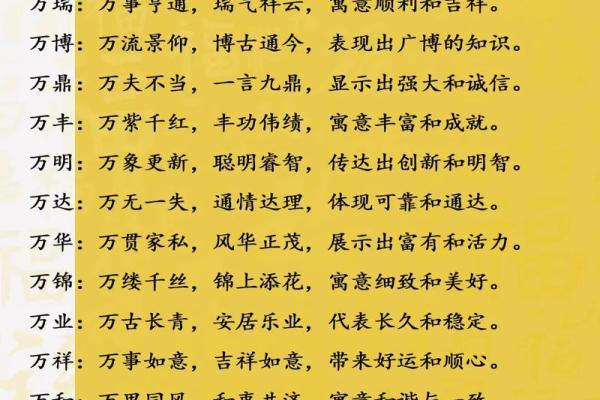 万瑞：万事亨通，瑞气祥云，寓意顺利和吉祥。
万博：万流景仰，博古通今，表现出广博的知识。
万鼎：万夫不当，一言九鼎，显示出强大和诚信。
万丰：万紫千红，丰功伟绩，寓意丰富和成就。
万明：万象更新，聪明睿智，传达出创新和明智。
万达：万无一失，通情达理，体现可靠和通达。
万华：万贯家私，风华正茂，展示出富有和活力。
万锦：万缕千丝，锦上添花，寓意细致和美好。
万业：万古长青，安居乐业，代表长久和稳定。
万祥：万事如意，吉祥如意，带来好运和顺心。
万和：万里同风，和衷共济，寓意和谐与一致